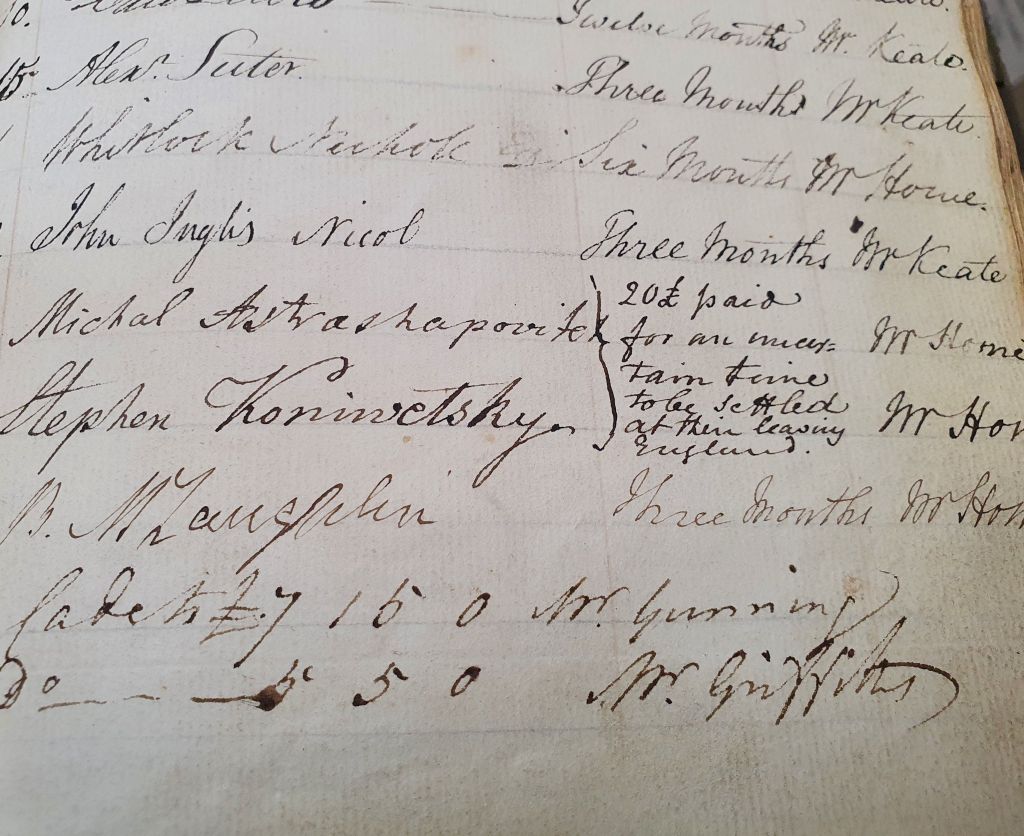 Twelve Months Mr. Keate.
15 Alexr. Suter. Three Months Mr Keate
Whitlock Nicholl Six Months Mr Home.
John Inglis Nicol Three Months Mr Keate
Michal Astrashapovitch 20£ paid
for an uncer= Mr Home
tain time
Stephen Koniwetsky. to be settled Mr Hom
at their leaving
England.
B. McLaughlin Three Months Mr Hom
Cadets £7 15 0 Mr. Gunning
Do 5 5 0 Mr. Griffiths